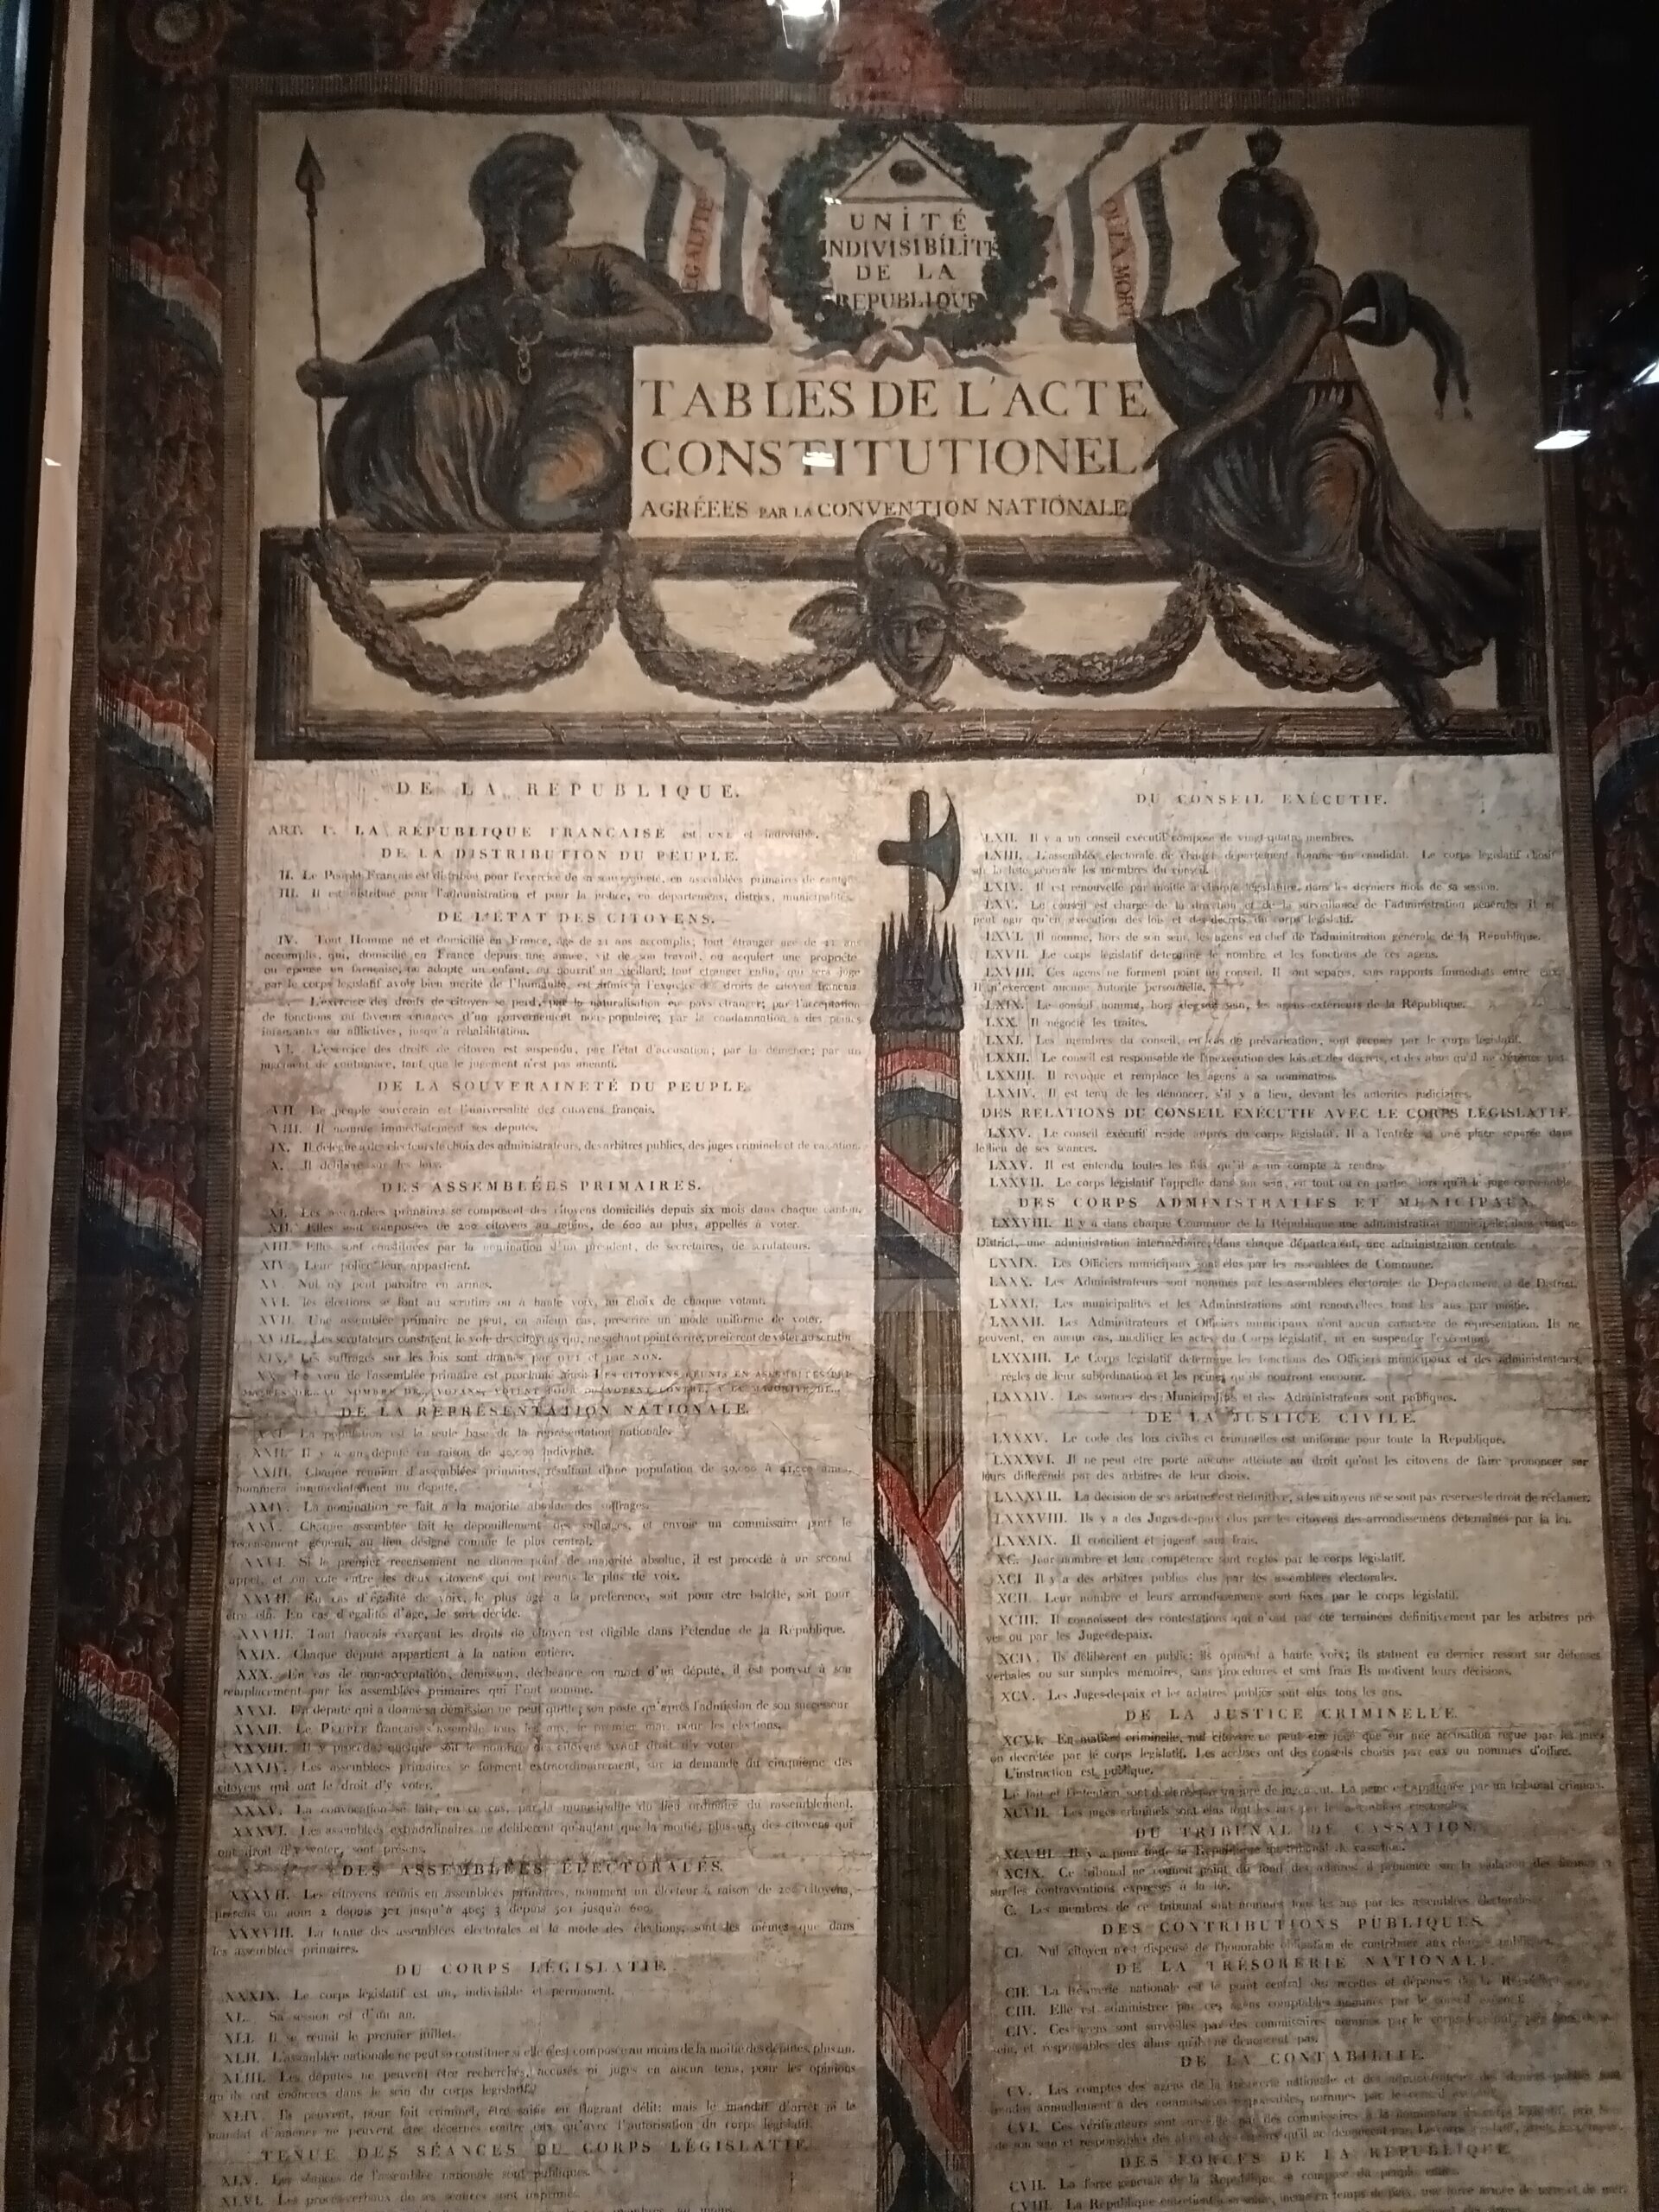 EGALITÉ
UNITÉ
INDIVISIBILITÉ
DE LA
REPUBLIQUE
OU LA MORT
TABLES DE L'ACTE
CONSTITUTIONEL
AGRÉEES PAR LA CONVENTION NATIONALE
DE LA REPUBLIQUE.
ART. I. LA RÉPUBLIQUE FRANÇAISE est une et indivisible.
DE LA DISTRIBUTION DU PEUPLE.
II. Le Peuple Français est distribué pour l'exercice de sa souveraineté, en assemblées primaires de
III. Il est distribué pour l'administration et pour la justice, en départemens, districts, municipalités.
DE L'ÉTAT DES CITOYENS.
IV. Tout Homme né et domicilié en France, âgé de 21 ans accomplis; tout étranger âgé de 21 ans
accomplis, qui, domicilié en France depuis une année, vit de son travail, ou acquiert une propriété
ou épouse un française, ou adopte un enfant, ou nourrit un vieillard; tout étranger enfin, qui sera jugé
par le corps legislatif avoir bien mérité de l'humanité, est admis à l'exercice droits de citoyen français
L'exercice des droits de citoyen se perd, par la naturalisation en pays étranger; par l'acceptation
de fonctions ou faveurs émanées d'un gouvernement non-populaire; par la condamnation à des peines
infamantes ou afflictives, jusqu'à réhabilitation.
VI. L'exercice des droits de citoyen est suspendu, par l'état d'accusation, par la démence; par un
jugement de contumace, tant que le jugement n'est pas anéanti.
DE LA SOUVERAINETÉ DU PEUPLE.
VII. Le peuple souverain est l'universalité des citoyens français.
VIII. Il nomme immédiatement ses députés.
IX. Il délègue à des electeurs le choix des administrateurs, des arbitres publics, des juges criminels et de cassation.
X. Il délibère sur les lois.
DES ASSEMBLÉES PRIMAIRES.
XI. Les assemblées primaires se composent des citoyens domiciliés depuis six mois dans chaque canton.
XII. Elles sont composées de 200 citoyens au moins, de 600 au plus, appellés à voter.
XIII. Elles sont constituées par la nomination d'un président, de secrétaires, de scrutateurs.
XIV. Leur police leur appartient.
XV. Nul n'y peut paroître en armes.
XVI. les élections se font au scrutin ou à haute voix, au choix de chaque votant.
XVII. Une assemblée primaire ne peut, en aucun cas, prescrire un mode uniforme de voter.
XVIII. Les scrutateurs constatent le vote des citoyens qui, ne sachant point écrire, préfèrent de voter au scrutin
XIX. Les suffrages sur les lois sont donnés par OUI et par NON.
XX. Le vœu de l'assemblée primaire est proclamé ainsi LES CITOYENS RÉUNIS EN ASSEMBLÉES
AU NOMBRE DE VOTANS, VOTENT POUR OU VOTENT CONTRE, A LA MAJORITÉ DE
DE LA REPRÉSENTATION NATIONALE.
XXI. La population est la seule base de la représentation nationale.
XXII. Il y a un député en raison de 40,000 individus.
XXIII. Chaque réunion d'assemblées primaires, résultant d'une population de 39,000 à 41,000 ames,
nommera immédiatement un député.
XXIV. La nomination se fait à la majorité absolue des suffrages.
XXV. Chaque assemblée fait le dépouillement des suffrages, et envoie un commissaire pour le
recensement général, au lieu désigné comme le plus central.
XXVI. Si le premier recensement ne donne point de majorité absolue, il est procédé à un second
appel, et on vote entre les deux citoyens qui ont réunis le plus de voix.
XXVII. En cas d'égalité de voix, le plus âgé a la préférence, soit pour être balotté, soit pour
être élu. En cas d'égalité d'âge, le sort décide.
XXVIII. Tout français exerçant les droits de citoyen est éligible dans l'étendue de la République.
XXIX. Chaque député appartient à la nation entière.
XXX. En cas de non-acceptation, démission, déchéance ou mort d'un député, il est pourvu à son
remplacement par les assemblées primaires qui l'ont nommé.
XXXI. Un député qui a donné sa démission ne peut quitter son poste qu'après l'admission de son successeur
XXXII. Le PEUPLE français s'assemble tous les ans, le premier mai, pour les élections.
XXXIII. Il y procède, quelque soit le nombre des citoyens ayant droit d'y voter
XXXIV. Les assemblées primaires se forment extraordinairement, sur la demande du cinquième des
citoyens qui ont le droit d'y voter.
XXXV. La convocation se fait, en ce cas, par la municipalité du lieu ordinaire du rassemblement.
XXXVI. Les assemblées extraordinaires ne délibèrent qu'autant que la moitié, plus un, des citoyens qui
ont droit d'y voter, sont présens.
DES ASSEMBLÉES ÉLECTORALES.
XXXVII. Les citoyens réunis en assemblées primaires, nomment un électeur à raison de 200 citoyens,
présens ou non; 2 depuis 301 jusqu'à 400; 3 depuis 501 jusqu'à 600.
XXXVIII. La tenue des assemblées électorales et la mode des élections, sont les mêmes que dans
les assemblées primaires.
DU CORPS LÉGISLATIF.
XXXIX. Le corps législatif est un, indivisible et permanent.
XL. Sa session est d'un an.
XLI. Il se réunit le premier juillet.
XLII. L'assemblée nationale ne peut se constituer si elle n'est composée au moins de la moitié des députés, plus un.
XLIII. Les députés ne peuvent être recherchés, accusés ni jugés en aucun tems, pour les opinions
qu'ils ont énoncées dans le sein du corps législatif.
XLIV. Ils peuvent, pour fait criminel, être saisis en flagrant délit: mais le mandat d'arrêt ni le
mandat d'amener ne peuvent être décernés contre eux qu'avec l'autorisation du corps législatif.
TENUE DES SÉANCES DU CORPS LÉGISLATIF.
XLV. Les séances de l'assemblée nationale sont publiques.
XLVI. Les procès-verbaux de ses séances sont imprimés.
DU CONSEIL EXÉCUTIF.
LXII. Il y a un conseil exécutif composé de vingt-quatre membres.
LXIII. L'assemblée électorale de chaque département nomme un candidat. Le corps législatif choisit
sur la liste générale les membres du conseil.
LXIV. Il est renouvellé par moitié à chaque législature, dans les derniers mois de sa session.
LXV. Le conseil est chargé de la direction et de la surveillance de l'administration générale; Il ne
peut agir qu'en exécution des lois et des décrets du corps législatif.
LXVI. Il nomme, hors de son sein, les agens en chef de l'adminitration générale de la République.
LXVII. Le corps législatif détermine le nombre et les fonctions de ces agens.
LXVIII. Ces agens ne forment point un conseil. Il sont séparés, sans rapports immédiats entre eux;
Il n'exercent aucune autorité personnelle.
LXIX. Le conseil nomme, hors de son sein, les agens extérieurs de la République.
LXX. Il négocie les traités.
LXXI. Les membres du conseil, en cas de prévarication, sont accusés par le corps législatif.
LXXII. Le conseil est responsable de l'inexécution des lois et des décrets, et des abus qu'il ne dénonce pas.
LXXIII. Il révoque et remplace les agens à sa nomination.
LXXIV. Il est tenu de les dénoncer, s'il y a lieu, devant les autorités judiciaires.
DES RELATIONS DU CONSEIL EXÉCUTIF AVEC LE CORPS LÉGISLATIF.
LXXV. Le conseil exécutif réside auprès du corps législatif. Il a l'entrée et une place séparée dans
le lieu de ses séances.
LXXV. Il est entendu toutes les fois qu'il a un compte à rendre.
LXXVII. Le corps législatif l'appelle dans son sein, en tout ou en partie, lors qu'il le juge convenable
DES CORPS ADMINISTRATIFS ET MUNICIPAUX.
LXXVIII. Il y a dans chaque Commune de la République une administration municipale; dans chaque
District, une administration intermédiaire; dans chaque département, une administration centrale
LXXIX. Les Officiers municipaux sont élus par les assemblées de Commune.
LXXX. Les Administrateurs sont nommés par les assemblées électorales de Département et de District.
LXXXI. Les municipalités et les Administrations sont renouvellées tous les ans par moitié.
LXXXII. Les Administrateurs et Officiers municipaux n'ont aucun caractère de représentation. Ils ne
peuvent, en aucun cas, modifier les actes du Corps législatif, ni en suspendre l'exécution.
LXXXIII. Le Corps législatif détermine les fonctions des Officiers municipaux et des administrateurs,
règles de leur subordination et les peines qu'ils pourront encourir.
LXXXIV. Les séances des Municipalités et des Administrateurs sont publiques.
DE LA JUSTICE CIVILE.
LXXXV. Le code des lois civiles et criminelles est uniforme pour toute la République.
LXXXVI. Il ne peut être porté aucune atteinte au droit qu'ont les citoyens de faire prononcer sur
leurs différends par des arbitres de leur choix.
LXXXVII. La décision de ses arbitres est définitive, si les citoyens ne se sont pas reservés le droit de réclamer.
LXXXVIII. Ils y a des Juges-de-paix élus par les citoyens des arrondissemens déterminés par la loi.
LXXXIX. Il concilient et jugent sans frais.
XC. Leur nombre et leur compétence sont réglés par le corps législatif.
XCI Il y a des arbitres publics élus par les assemblées électorales.
XCII. Leur nombre et leurs arrondissemens sont fixés par le corps législatif.
XCIII. Il connoissent des contestations qui n'ont pas été terminées définitivement par les arbitres pri-
vés ou par les Juges-de-paix.
XCIV. Ils délibèrent en public; ils opinent à haute voix; ils statuent en dernier ressort sur défenses
verbales ou sur simples mémoires, sans procédures et sans frais Ils motivent leurs décisions.
XCV. Les Juges-de-paix et les arbitres publics sont élus tous les ans.
DE LA JUSTICE CRIMINELLE.
XCVI. En matière criminelle, nul citoyen ne peut être jugé que sur une accusation reçue par les jurés
ou décrétée par le corps législatif. Les accusés ont des conseils choisis par eux ou nommés d'office.
L'instruction est publique.
Le fait et l'intention sont déclarés par un juré de jugement. La peine est appliquée par un tribunal criminel.
XCVII. Les juges criminels sont élus tous les ans par les assemblées électorales.
DU TRIBUNAL DE CASSATION.
XCVIII. Il y a pour toute la République un tribunal de cassation.
XCIX. Ce tribunal ne connoit point du fond des affaires. il prononce sur la violation des formes
sur les contraventions expresses à la loi.
C. Les membres de ce tribunal sont nommés tous les ans par les assemblées électorales.
DES CONTRIBUTIONS PUBLIQUES.
CI. Nul citoyen n'est dispensé de l'honorable obligation de contribuer aux charges publiques.
DE LA TRÉSORERIE NATIONALE.
CII. La trésorerie nationale est le point central des recettes et dépenses de la République
CIII. Elle est administrée par des agens comptables nommés par le conseil exécutif.
CIV. Ces agens sont surveillés par des commissaires nommés par le corps législatif,
sein, et responsables des abus qu'ils ne dénoncent pas.
DE LA CONTABILITÉ.
CV. Les comptes des agens de la trésorerie nationale et des administrateurs des deniers publics sont
rendus annuellement à des commissaires responsables, nommés par le conseil exécutif.
CVI. Ces vérificateurs sont surveillés par des commissaires à la nomination du corps législatif, pris hors
de son sein et responsables des abus et des erreurs qu'il ne dénoncent pas. Le corps législatif
DES FORCES DE LA RÉPUBLIQUE.
CVII. La force générale de la République se compose du peuple entier.
CVIII. La République entretient à sa solde, même en temps de paix, une force armée de terre et de mer.